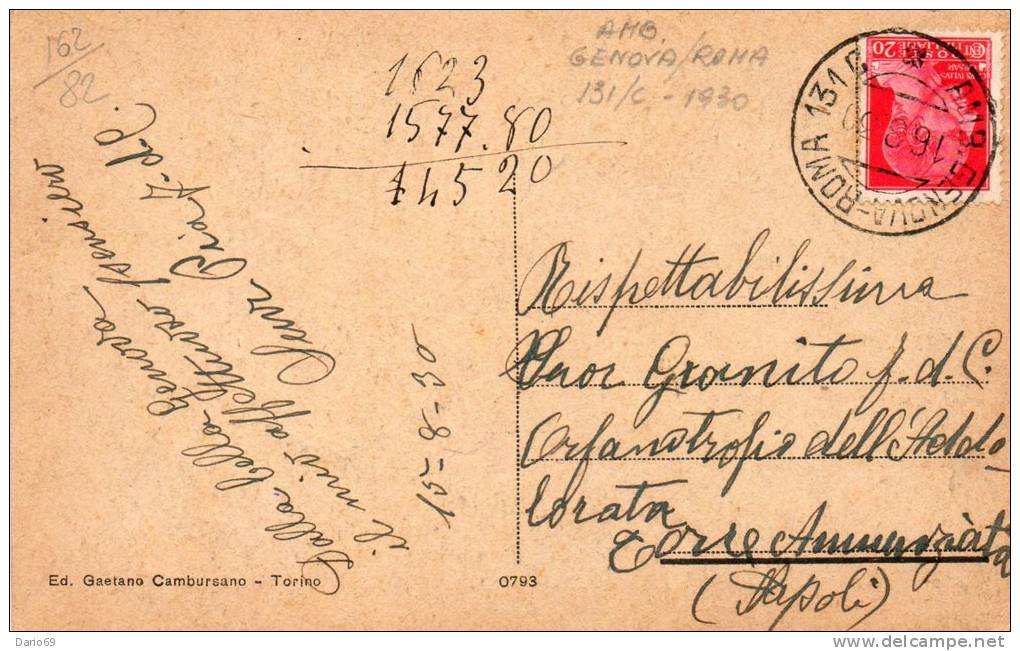 162/82
AMB.
GENOVA/ROMA
131/C - 1930
1623
1577.80
145 20
CENT. 20
POSTE ITALIANE
AMB. GENOVA-ROMA 131
16.8.30
Dalla bella Genova
il mio affettuoso pensiero
Suor Pia f. d. C.
15-8-30
Rispettabilissima
Suor Granito f. d. C.
Orfanotrofio dell'Addo
lorata
Torre Annunziata
(Napoli)
Ed. Gaetano Cambursano - Torino
0793
Dario69
www.delcampe.net